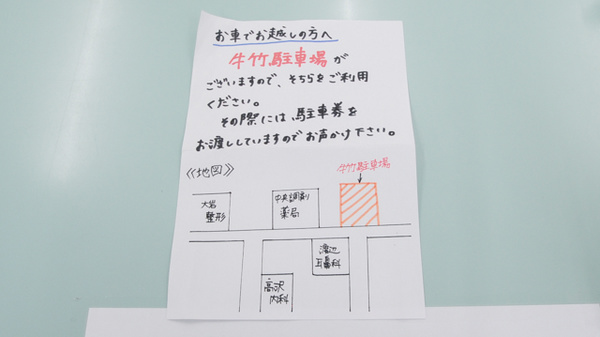 お車でお越しの方へ
牛竹駐車場が
ございますので、そちらをご利用
ください。
その際には、駐車券を
お渡ししていますのでお声かけ下さい。
《地図》
牛竹駐車場
大岩
整形
中央調剤
薬局
渡辺
耳鼻科
高沢
内科